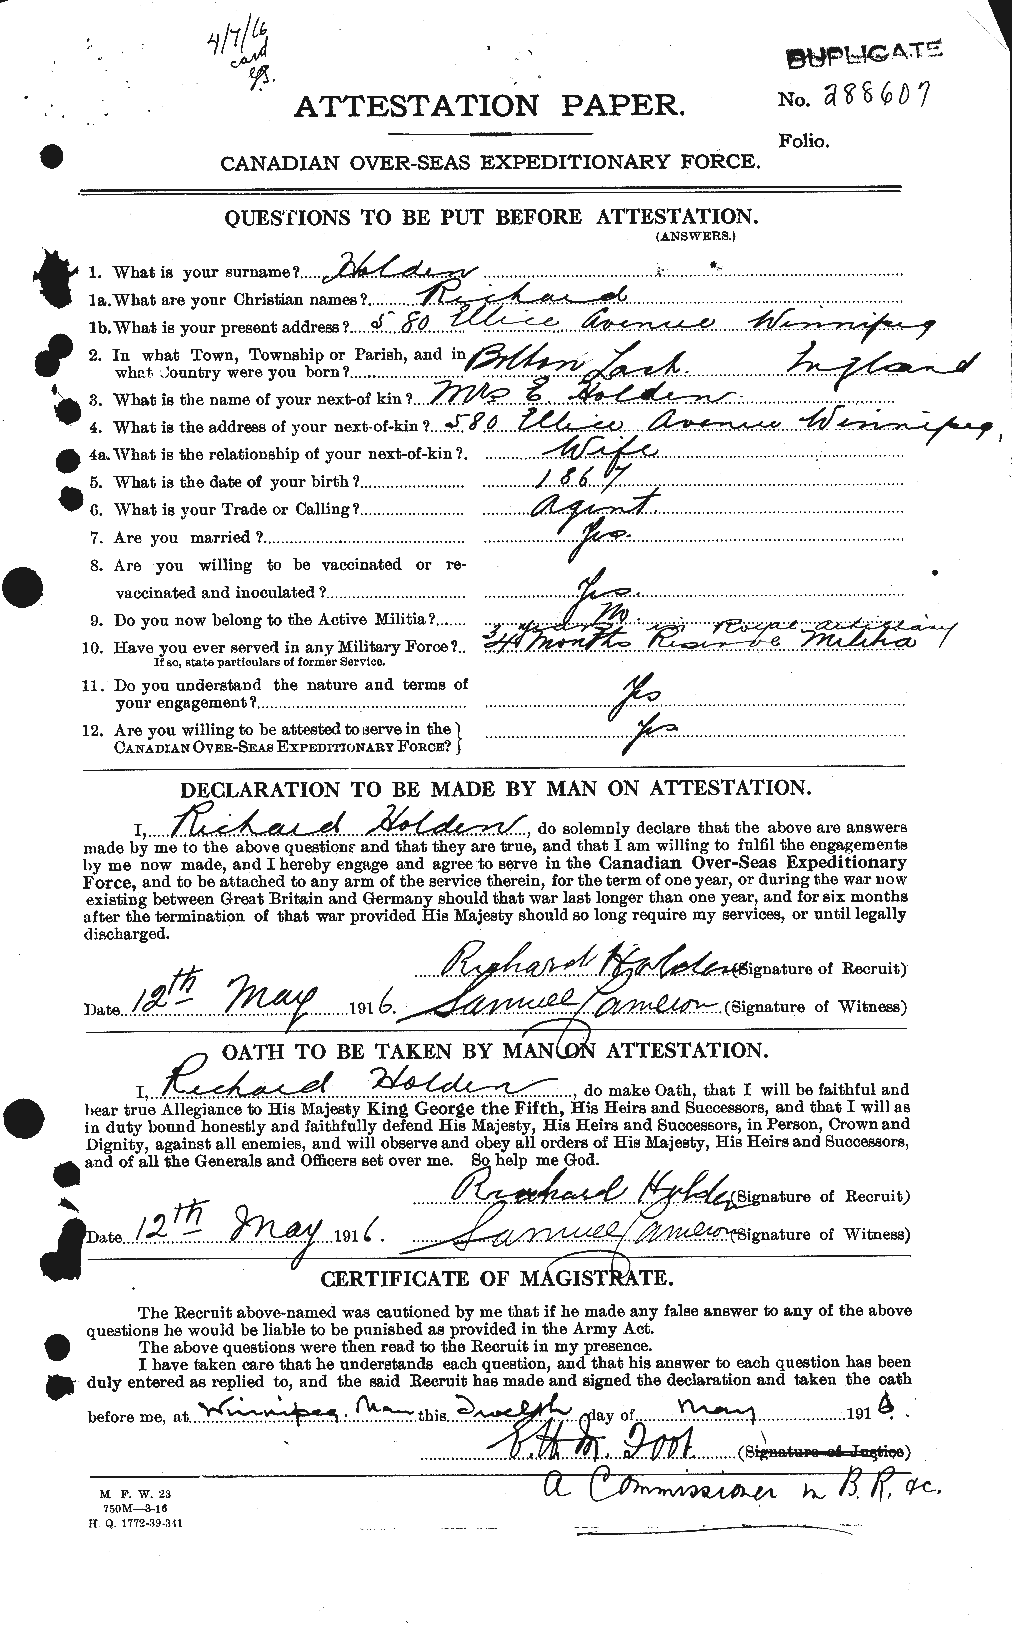 4/7/16
card
DUPLICATE
No. 288607
ATTESTATION PAPER.
Folio.
CANADIAN OVER-SEAS EXPEDITIONARY FORCE.
QUESTIONS TO BE PUT BEFORE ATTESTATION.
(ANSWERS.)
1. What is your surname? Holden
1a. What are your Christian names? Richard
1b. What is your present address? 580 Ellice Avenue Winnipeg
2. In what Town, Township or Parish, and in
what Country were you born? Bolton Lanh. England
3. What is the name of your next-of kin? Mrs E Holden
4. What is the address of your next-of-kin? 580 Ellice Avenue Winnipeg,
4a. What is the relationship of your next-of-kin? Wife
5. What is the date of your birth? 1867
6. What is your Trade or Calling? Agent.
7. Are you married? Yes.
8. Are you willing to be vaccinated or re-
vaccinated and inoculated? Yes.
9. Do you now belong to the Active Militia? No.
3 years in Royal Artillery
10. Have you ever served in any Military Force? Months Reserve Militia
If so, state particulars of former Service.
11. Do you understand the nature and terms of
your engagement? Yes
12. Are you willing to be attested to serve in the
CANADIAN OVER-SEAS EXPEDITIONARY FORCE? Yes
DECLARATION TO BE MADE BY MAN ON ATTESTATION.
I, Richard Holden, do solemnly declare that the above are answers
made by me to the above questions and that they are true, and that I am willing to fulfil the engagements
by me now made, and I hereby engage and agree to serve in the Canadian Over-Seas Expeditionary
Force, and to be attached to any arm of the service therein, for the term of one year, or during the war now
existing between Great Britain and Germany should that war last longer than one year, and for six months
after the termination of that war provided His Majesty should so long require my services, or until legally
discharged.
Richard Holden (Signature of Recruit)
Date 12th May 1916. Samuel Cameron (Signature of Witness)
OATH TO BE TAKEN BY MAN ON ATTESTATION.
I, Richard Holden, do make Oath, that I will be faithful and
bear true Allegiance to His Majesty King George the Fifth, His Heirs and Successors, and that I will as
in duty bound honestly and faithfully defend His Majesty, His Heirs and Successors, in Person, Crown and
Dignity, against all enemies, and will observe and obey all orders of His Majesty, His Heirs and Successors,
and of all the Generals and Officers set over me. So help me God.
Richard Holden (Signature of Recruit)
Date 12th May 1916. Samuel Cameron (Signature of Witness)
CERTIFICATE OF MAGISTRATE.
The Recruit above-named was cautioned by me that if he made any false answer to any of the above
questions he would be liable to be punished as provided in the Army Act.
The above questions were then read to the Recruit in my presence.
I have taken care that he understands each question, and that his answer to each question has been
duly entered as replied to, and the said Recruit has made and signed the declaration and taken the oath
before me, at Winnipeg. Man this Twelfth day of May 1916.
E. H. M. Foot. (Signature of Justice)
A Commissioner in B. R. &c.
M F. W. 23
750M—3-16
H. Q. 1772-39-341